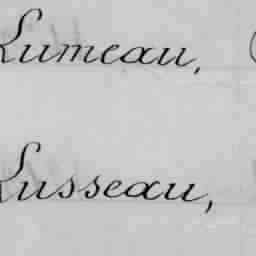 Lumeau,
Lusseau,